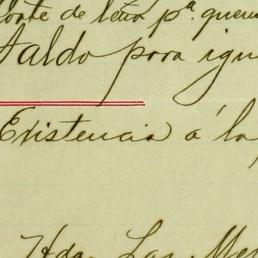 Corte de leña pª. quem
Saldo para igu
Existencia á la
Hda. Las Me